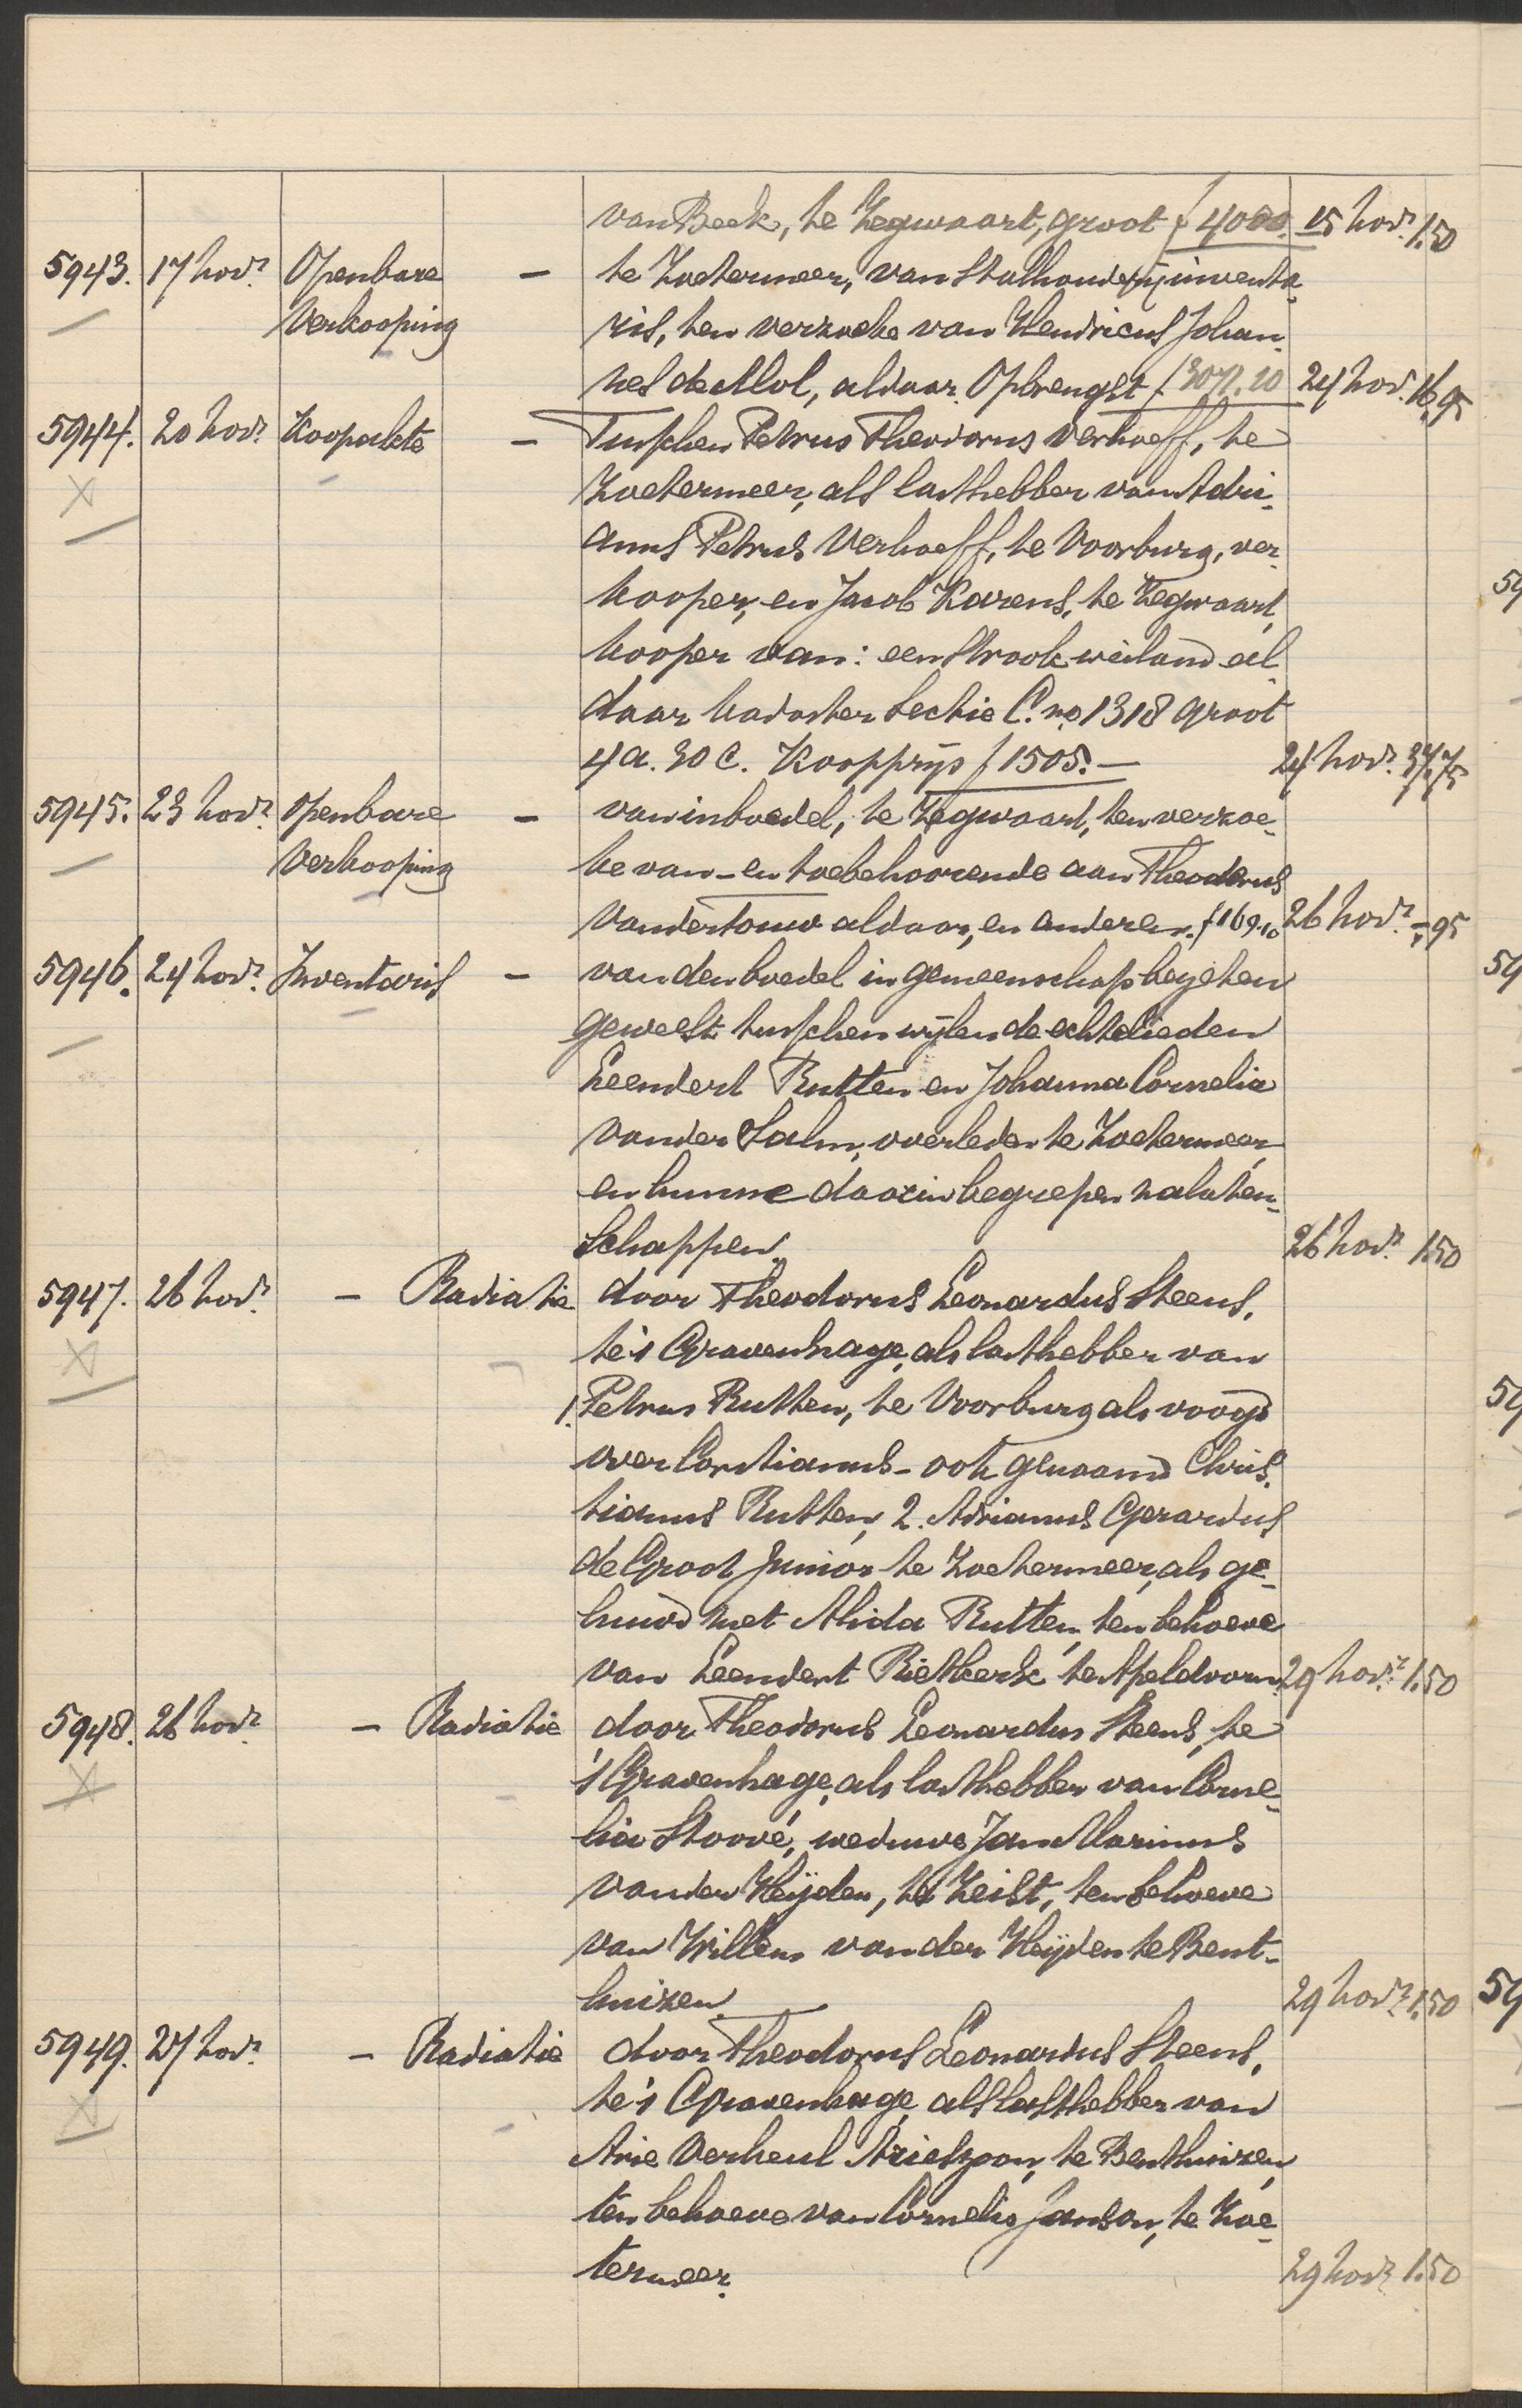 van Beek, te Zegwaart, groot f 4000. 15 Nov.r 1.50
5943. 17 Nov.r Openbare – te Zoetermeer, van Stalhouderijinventa-
Verkooping ris, ten verzoeke van Hendricus Johan-
nes de Mol, aldaar. Opbrengst f 3071.10 24 Nov. 16,95
5944. 20 Nov.r Koopakte – Tusschen Petrus Theodorus Verhoeff, te
Zoetermeer, als lasthebber van Adri-
anus Petrus Verhoeff, te Voorburg, ver-
kooper, en Jacob Karens, te Zegwaart,
kooper van: een strook weiland al-
daar kadaster Sectie C. no. 1318 groot
4 a. 30 c. Koopprijs f 1505.– 24 Nov.r 37,75
5945. 23 Nov.r Openbare – van inboedel, te Zegwaart, ten verzoe-
Verkooping ke van – en toebehoorende aan Theodorus
van der Touw aldaar, en anderen. f 169.10 26 Nov.r -,95
5946. 24 Nov.r Inventaris – van den boedel in gemeenschap bezeten
geweest tusschen wijlen de echtelieden
Leendert Rutten en Johanna Cornelia
van der Salm, overleden te Zoetermeer,
en hunne daarin begrepen nalaten-
schappen. 26 Nov.r 1.50
5947. 26 Nov.r – Radiatie door Theodorus Leonardus Steens,
te 's Gravenhage, als lasthebber van
1. Petrus Rutten, te Voorburg als voogd
over Corstianus – ook genaamd Chris-
tianus Rutten, 2. Adrianus Gerardus
de Groot Junior te Zoetermeer, als ge-
huwd met Alida Rutten, ten behoeve
van Leendert Rietkerk te Apeldoorn. 29 Nov.r 1.50
5948. 26 Nov.r – Radiatie door Theodorus Leonardus Steens, te
's Gravenhage, als lasthebber van Corne-
lia Stoové, weduwe Jan Marinus
van der Heijden, te Zeist, ten behoeve
van Willem van der Heijden te Bent-
huizen. 29 Nov.r 1.50
5949. 27 Nov.r – Radiatie door Theodorus Leonardus Steens,
te 's Gravenhage als lasthebber van
Arie Verheul Arieszoon, te Benthuizen,
ten behoeve van Cornelis Janson, te Zoe-
termeer. 29 Nov.r 1.50